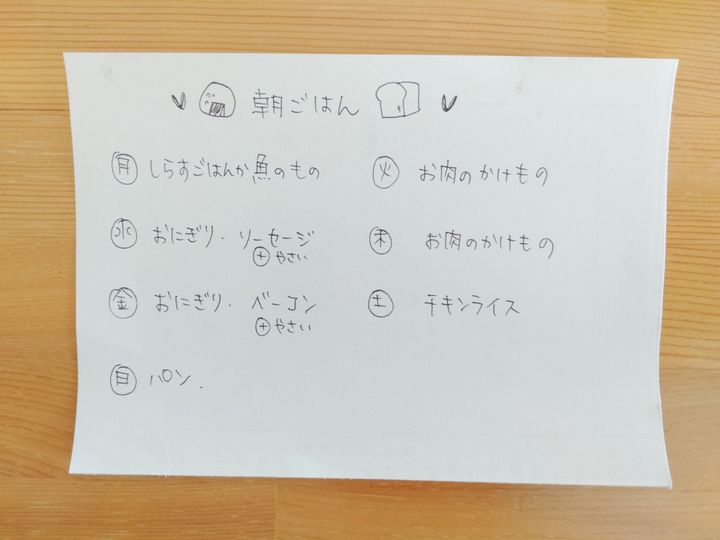 朝ごはん
㊊ しらすごはんか魚のもの ㊋ お肉のかけもの
㊌ おにぎり・ソーセージ ㊍ お肉のかけもの
⊕やさい
㊎ おにぎり・ベーコン ㊏ チキンライス
⊕やさい
㊐ パン.